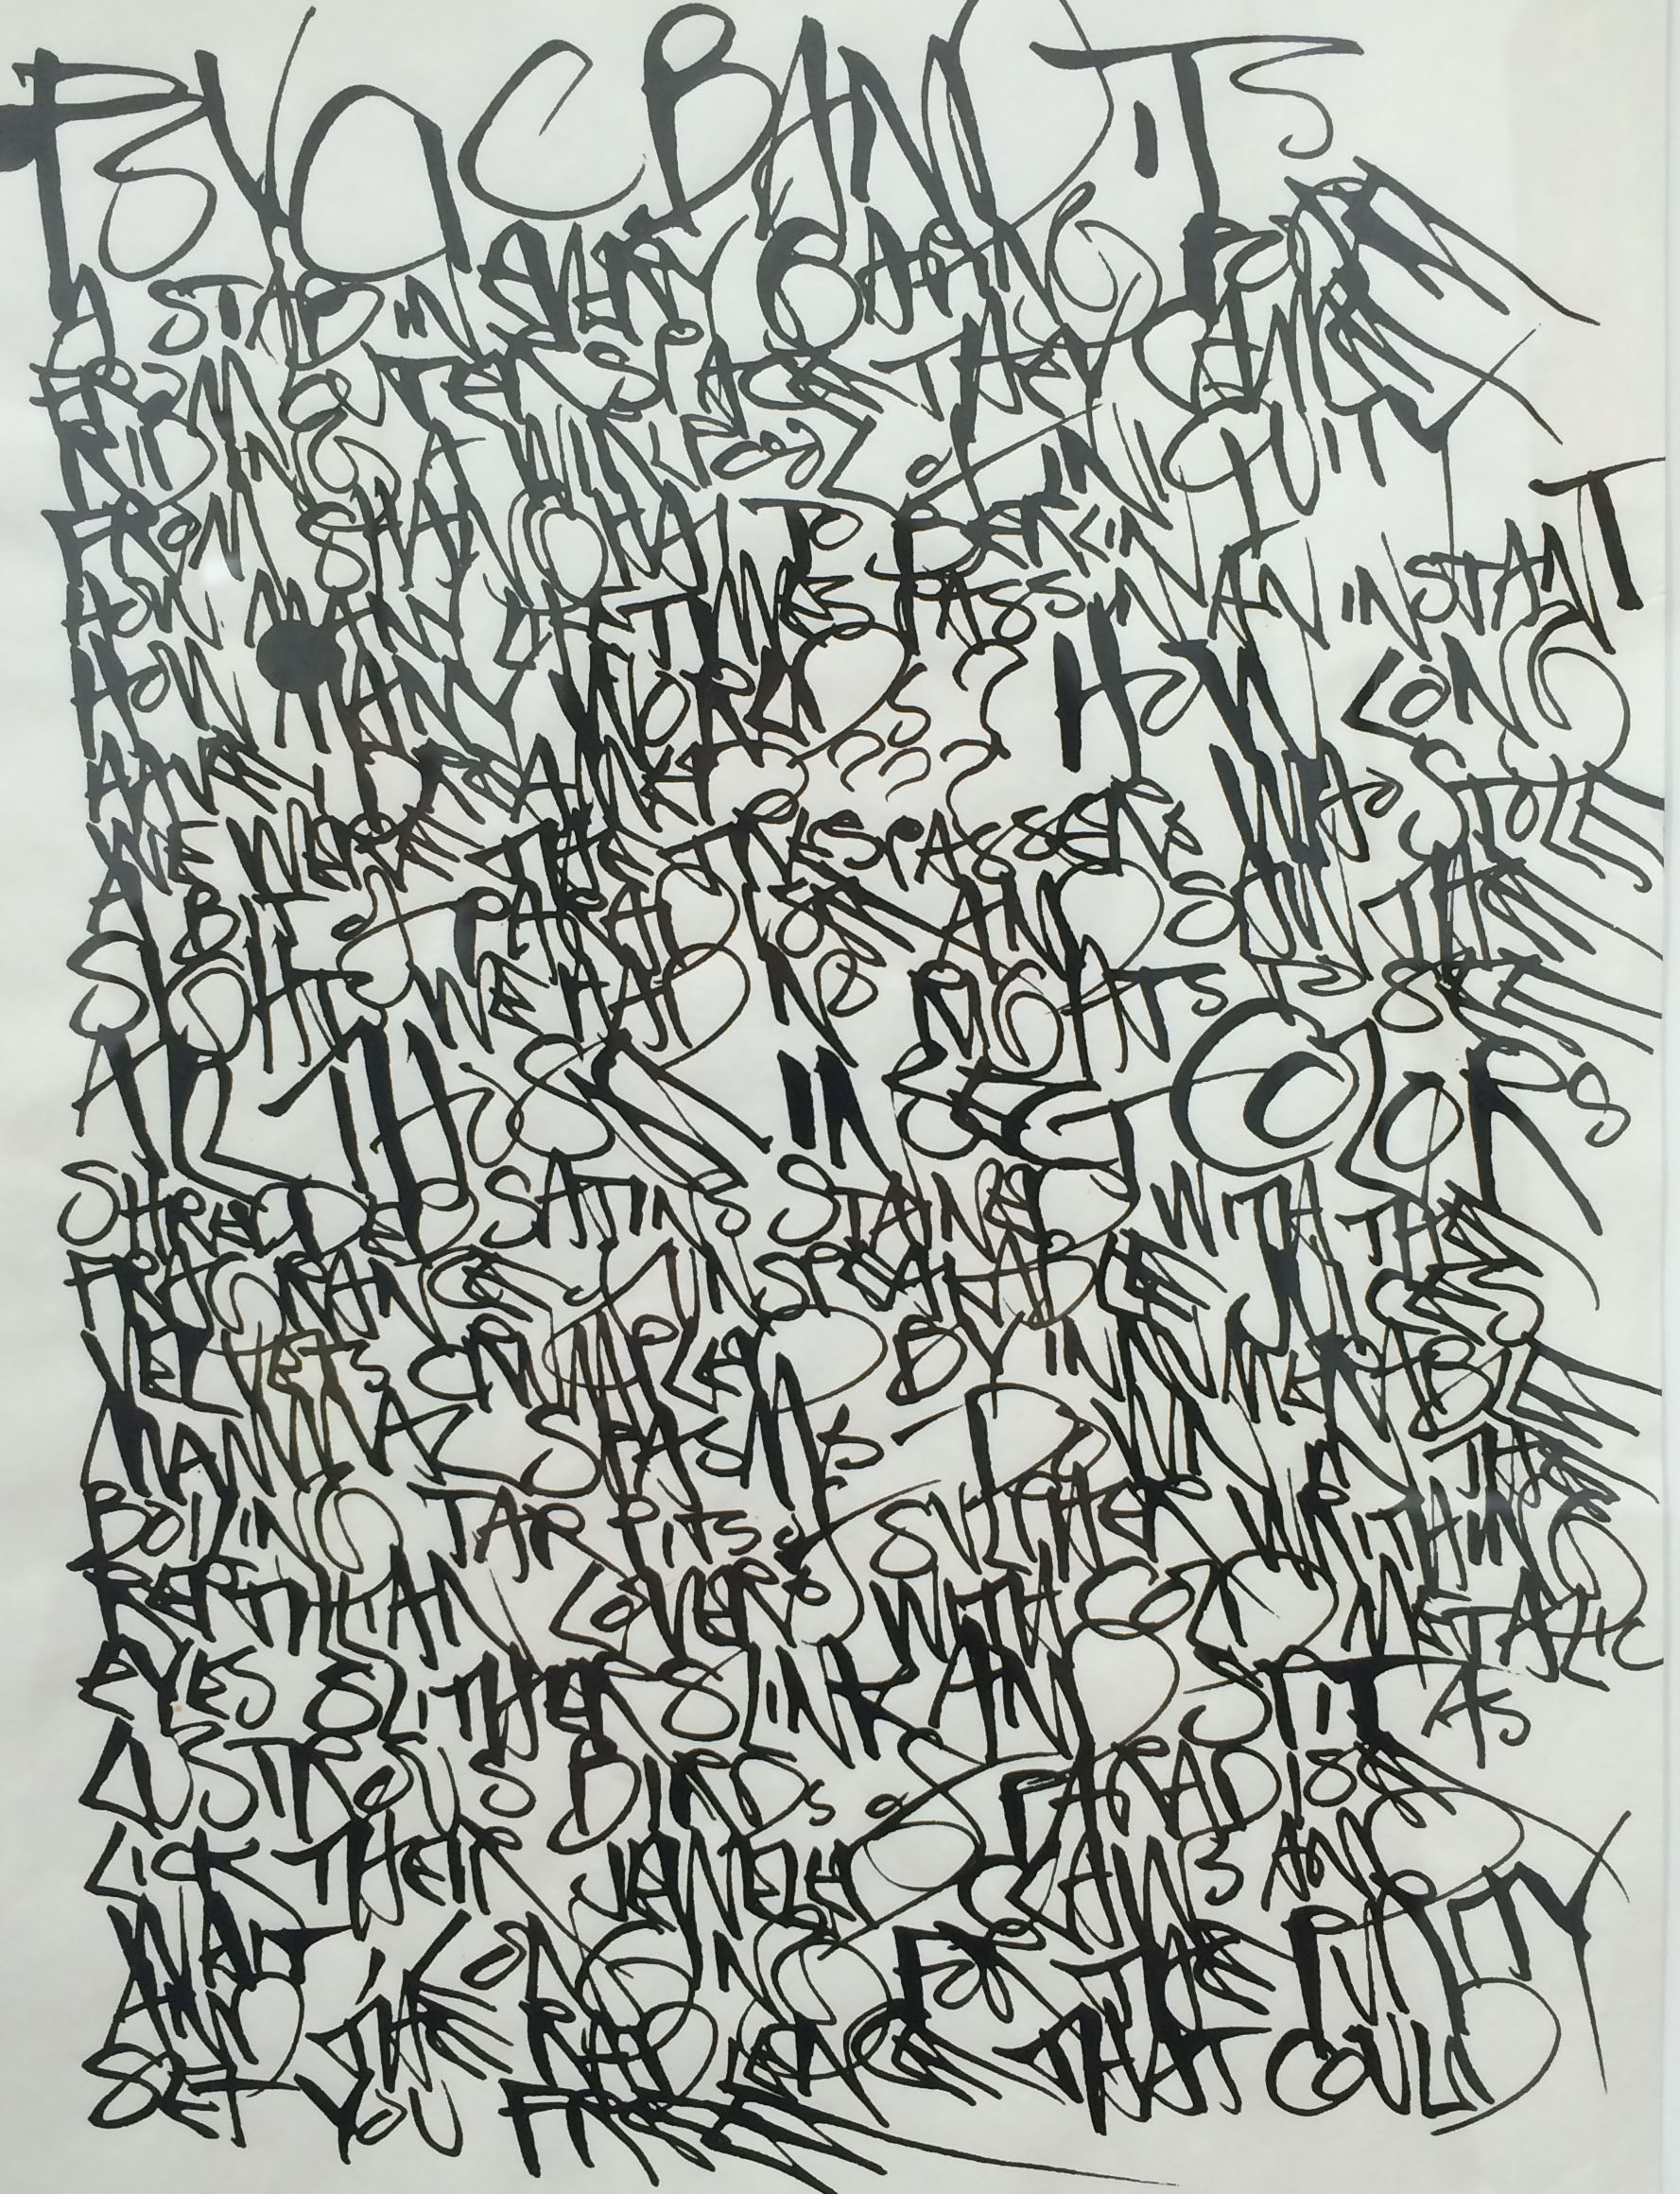 PSYC BANDITS
A STAB IN EVERY GAANG BORE
FROM OUTER SPACE THEY CAME
RIDING A WIRLPOOL of INIQUITY
FROM SHANGHAI TO BERLIN
HOW MANY LIFETIMES PASS IN AN INSTANT
HOW MANY WORLDS HOW LONG
HAVE I DREAMED
WE WERE THE TRESPASSERS WHO STOLE
A BIT of PARADISE AND SAW THE
SIGHTS WE HAD NO RIGHTS TO SEE
ALL THUSK INSECT COLORS
SHREDDED SATINS STAINED WITH THE
FRAGRANCE of UNSPEAKABLE JUICES
VELVETS CRUMPLED BY INNUMERABLE
MAMMAL SPASMS DOWN IN THE
BOILING TAR PITS of SULPHER WRITHING
REPTILIAN LOVERS WITH COLD METALIC
EYES SLITHER SLINK AND SPIT AS
LUSTROUS BIRDS of PARADISE
LICK THEIR JEWELED CLAWS AND
WAIT LONGING FOR THE PURITY
AND THE RAPID GRACE THAT COULD
SET YOU FREE